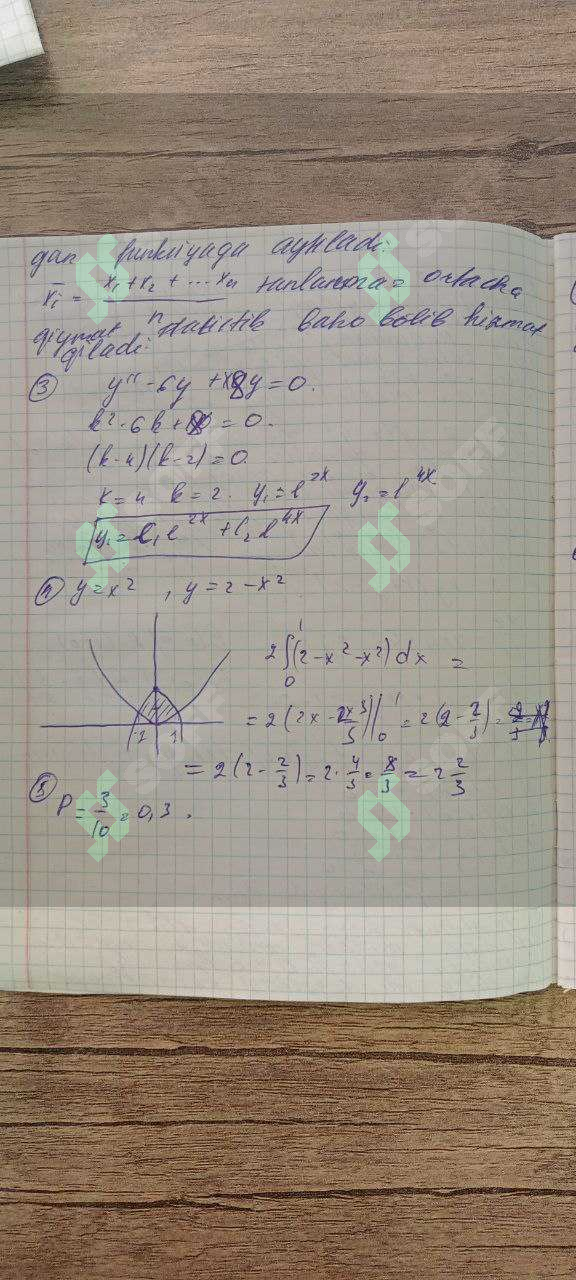 gan funksiyaga aytiladi.
x̄ᵢ = (x₁ + x₂ + ... xₙ)/n tanlanma ortacha
qiymat statistik baho bolib hizmat
qiladi.
③ y'' - 6y + 8y = 0.
k² - 6k + 8 = 0.
(k-4)(k-2) = 0
k = 4 k = 2. y₁ = e^2x y₂ = e^4x
y = C₁e^2x + C₂e^4x
④ y = x² , y = 2 - x²
2∫₀¹(2 - x² - x²)dx =
= 2(2x - 2x³/3)|₀¹ = 2(2 - 2/3) =
-1 1
= 2(2 - 2/3) = 2·4/3 = 8/3 = 2 2/3
⑤ P = 3/10 = 0,3.
SOFF
SOFF
SOFF
SOFF
SOFF
SOFF